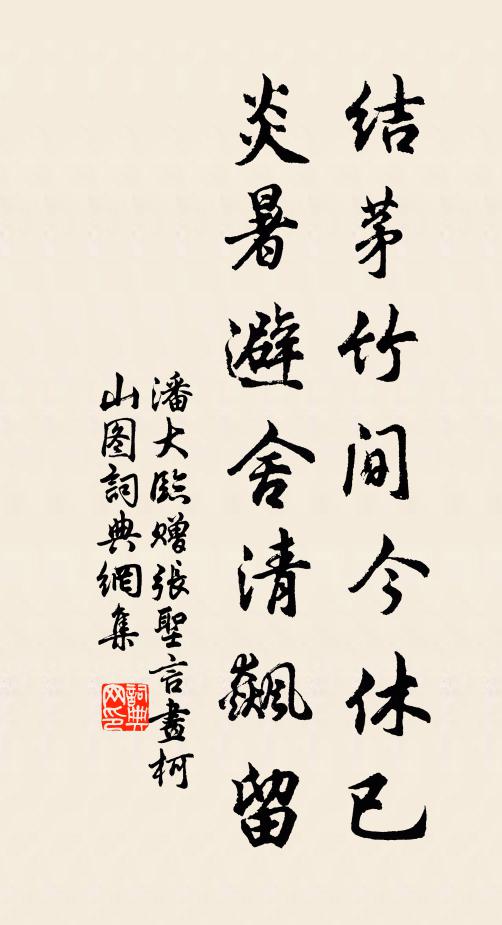 结茅竹间今休已
炎暑避舍清飙留
潘大临赠张圣言画柯
山图词典网集
词典网印